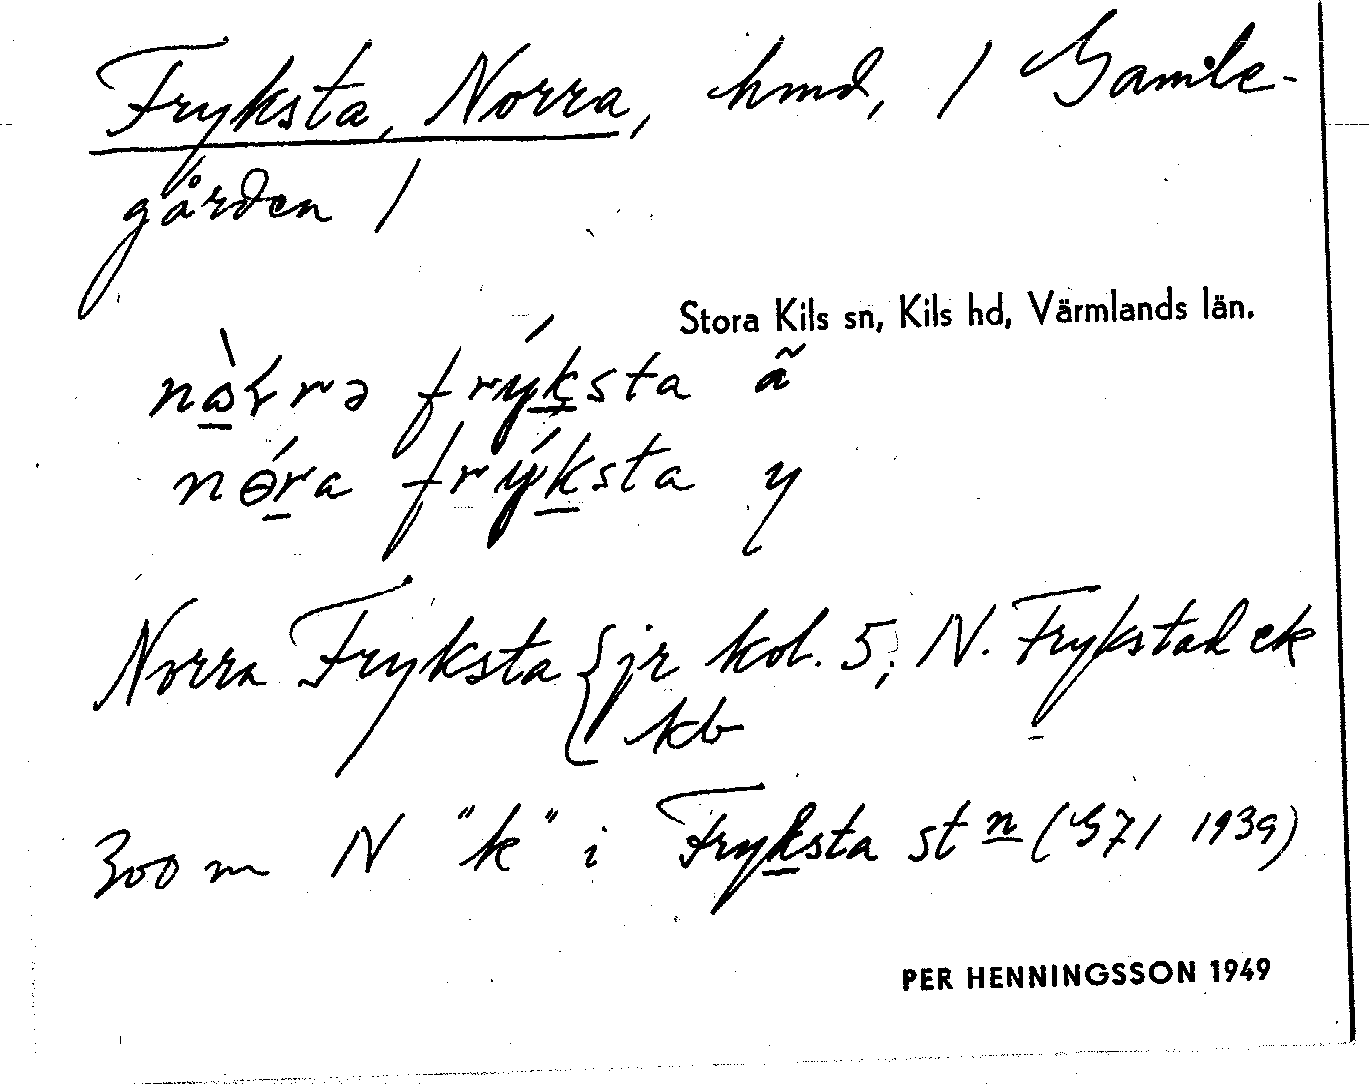 Fryksta, Norra, hmd, / Gamle-
gården /
Stora Kils sn, Kils hd, Värmlands län.
frýksta ã
nɵ́ra frýksta y
Norra Fryksta { jr kol. 5; N. Frykstad ek
kb
300 m N "k" i Fryksta stn (G71 1939)
PER HENNINGSSON 1949